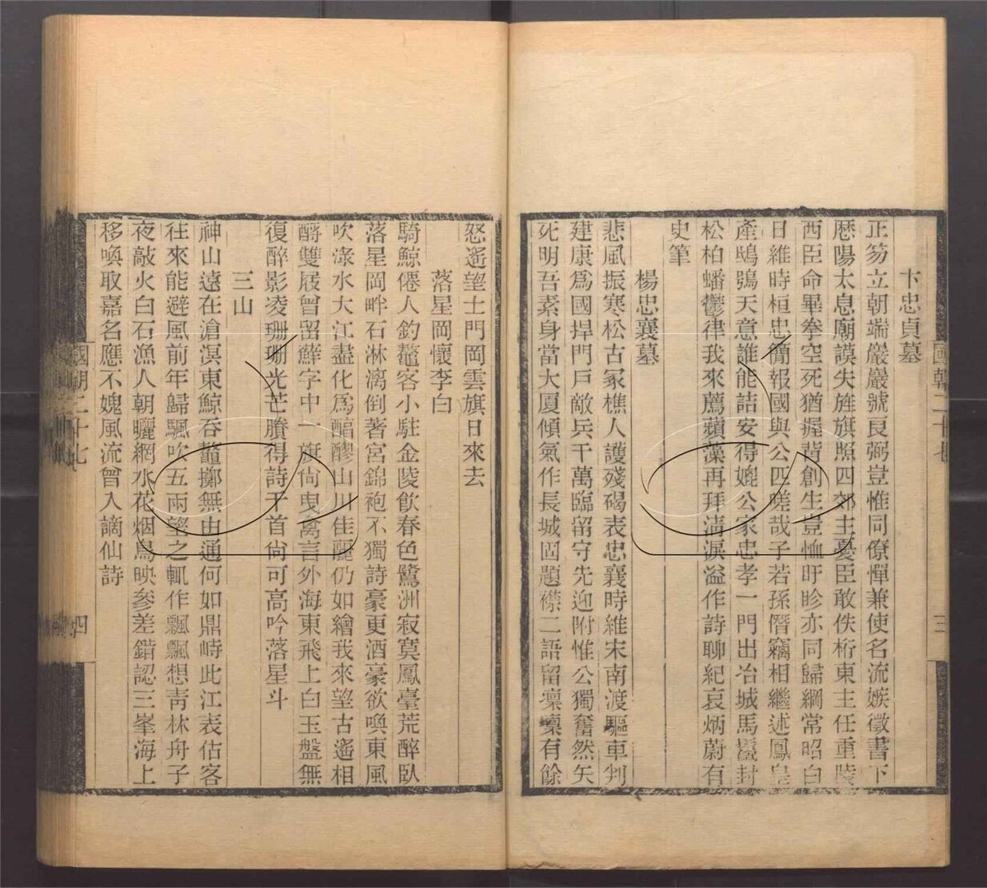 卞忠貞墓
正笏立朝端巖巖號良弼豈惟同僚憚兼使名流嫉徵書下
歷陽太息廟謨失旌旗照四郊主憂臣敢佚桁東主任重陵
西臣命畢拳空死猶握背創生豈恤盱眕亦同歸綱常昭白
日維時桓忠簡報國與公匹嗟哉子若孫僭竊相繼述鳳皇
產鴟鴞天意誰能詰安得媲公家忠孝一門出冶城馬鬣封
松柏蟠鬱律我來薦蘋藻再拜淸淚溢作詩聊紀哀炳蔚有
史筆
楊忠襄墓
悲風振寒松古冢樵人護殘碣表忠襄時維宋南渡驅車判
建康爲國捍門戶敵兵千萬臨留守先迎附惟公獨奮然矢
死明吾素身當大厦傾氣作長城固題襟二語留凜凜有餘
國朝二十七
三
怒遙望土門岡雲旗日來去
落星岡懷李白
騎鯨僊人釣鼇客小駐金陵飮春色鷺洲寂寞鳳臺荒醉臥
落星岡畔石淋漓倒著宮錦袍不獨詩豪更酒豪欲喚東風
吹淥水大江盡化爲醽醪山川佳麗仍如繪我來望古遙相
酹雙屐曾留蘚字中一旗尙曳离言外海東飛上白玉盤無
復醉影凌珊珊光芒賸得詩千首尙可高吟落星斗
三山
神山遠在滄溟東鯨吞鼇擲無由通何如鼎峙此江表估客
往來能避風前年歸颿吹五兩望之輒作飄飄想靑林舟子
夜敲火白石漁人朝曬網水花烟鳥映參差錯認三峯海上
移喚取嘉名應不媿風流曾入謫仙詩
國朝二十七
四